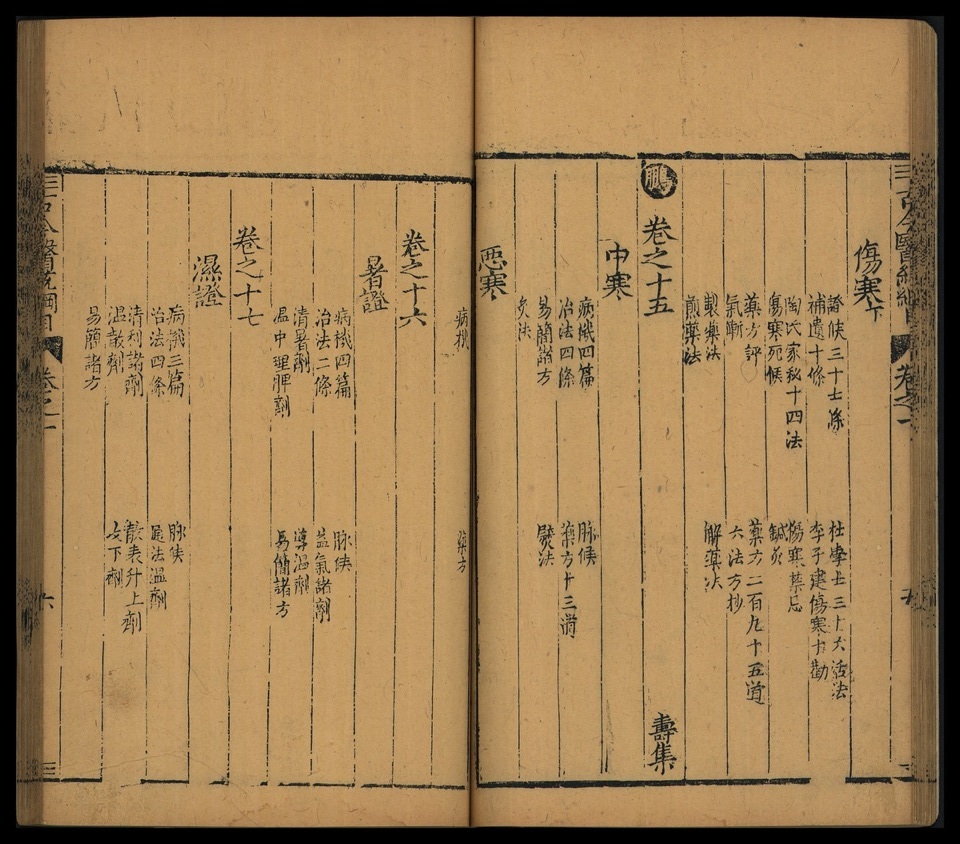 傷寒下
證候三十七條
杜學士三十六活法
補遺十條
李子建傷寒十勸
陶氏家秘十四法
傷寒禁忌
傷寒死候
鍼灸
藥方評
藥方二百九十五道
氣漸
六法方抄
製藥法
解藥法
煎藥法
鵬
卷之十五
壽集
中寒
病機四篇
脉候
治法四條
藥方十三道
易簡諸方
熨法
灸法
惡寒
病機
藥方
卷之十六
暑證
病機四篇
脉候
治法二條
益氣諸劑
清暑劑
導溫劑
溫中理脾劑
易簡諸方
卷之十七
濕證
病機三篇
脉候
治法四條
灸法溫劑
清利諸劑
散表升上劑
溫散劑
攻下劑
易簡諸方
古今醫統綱目
卷之一